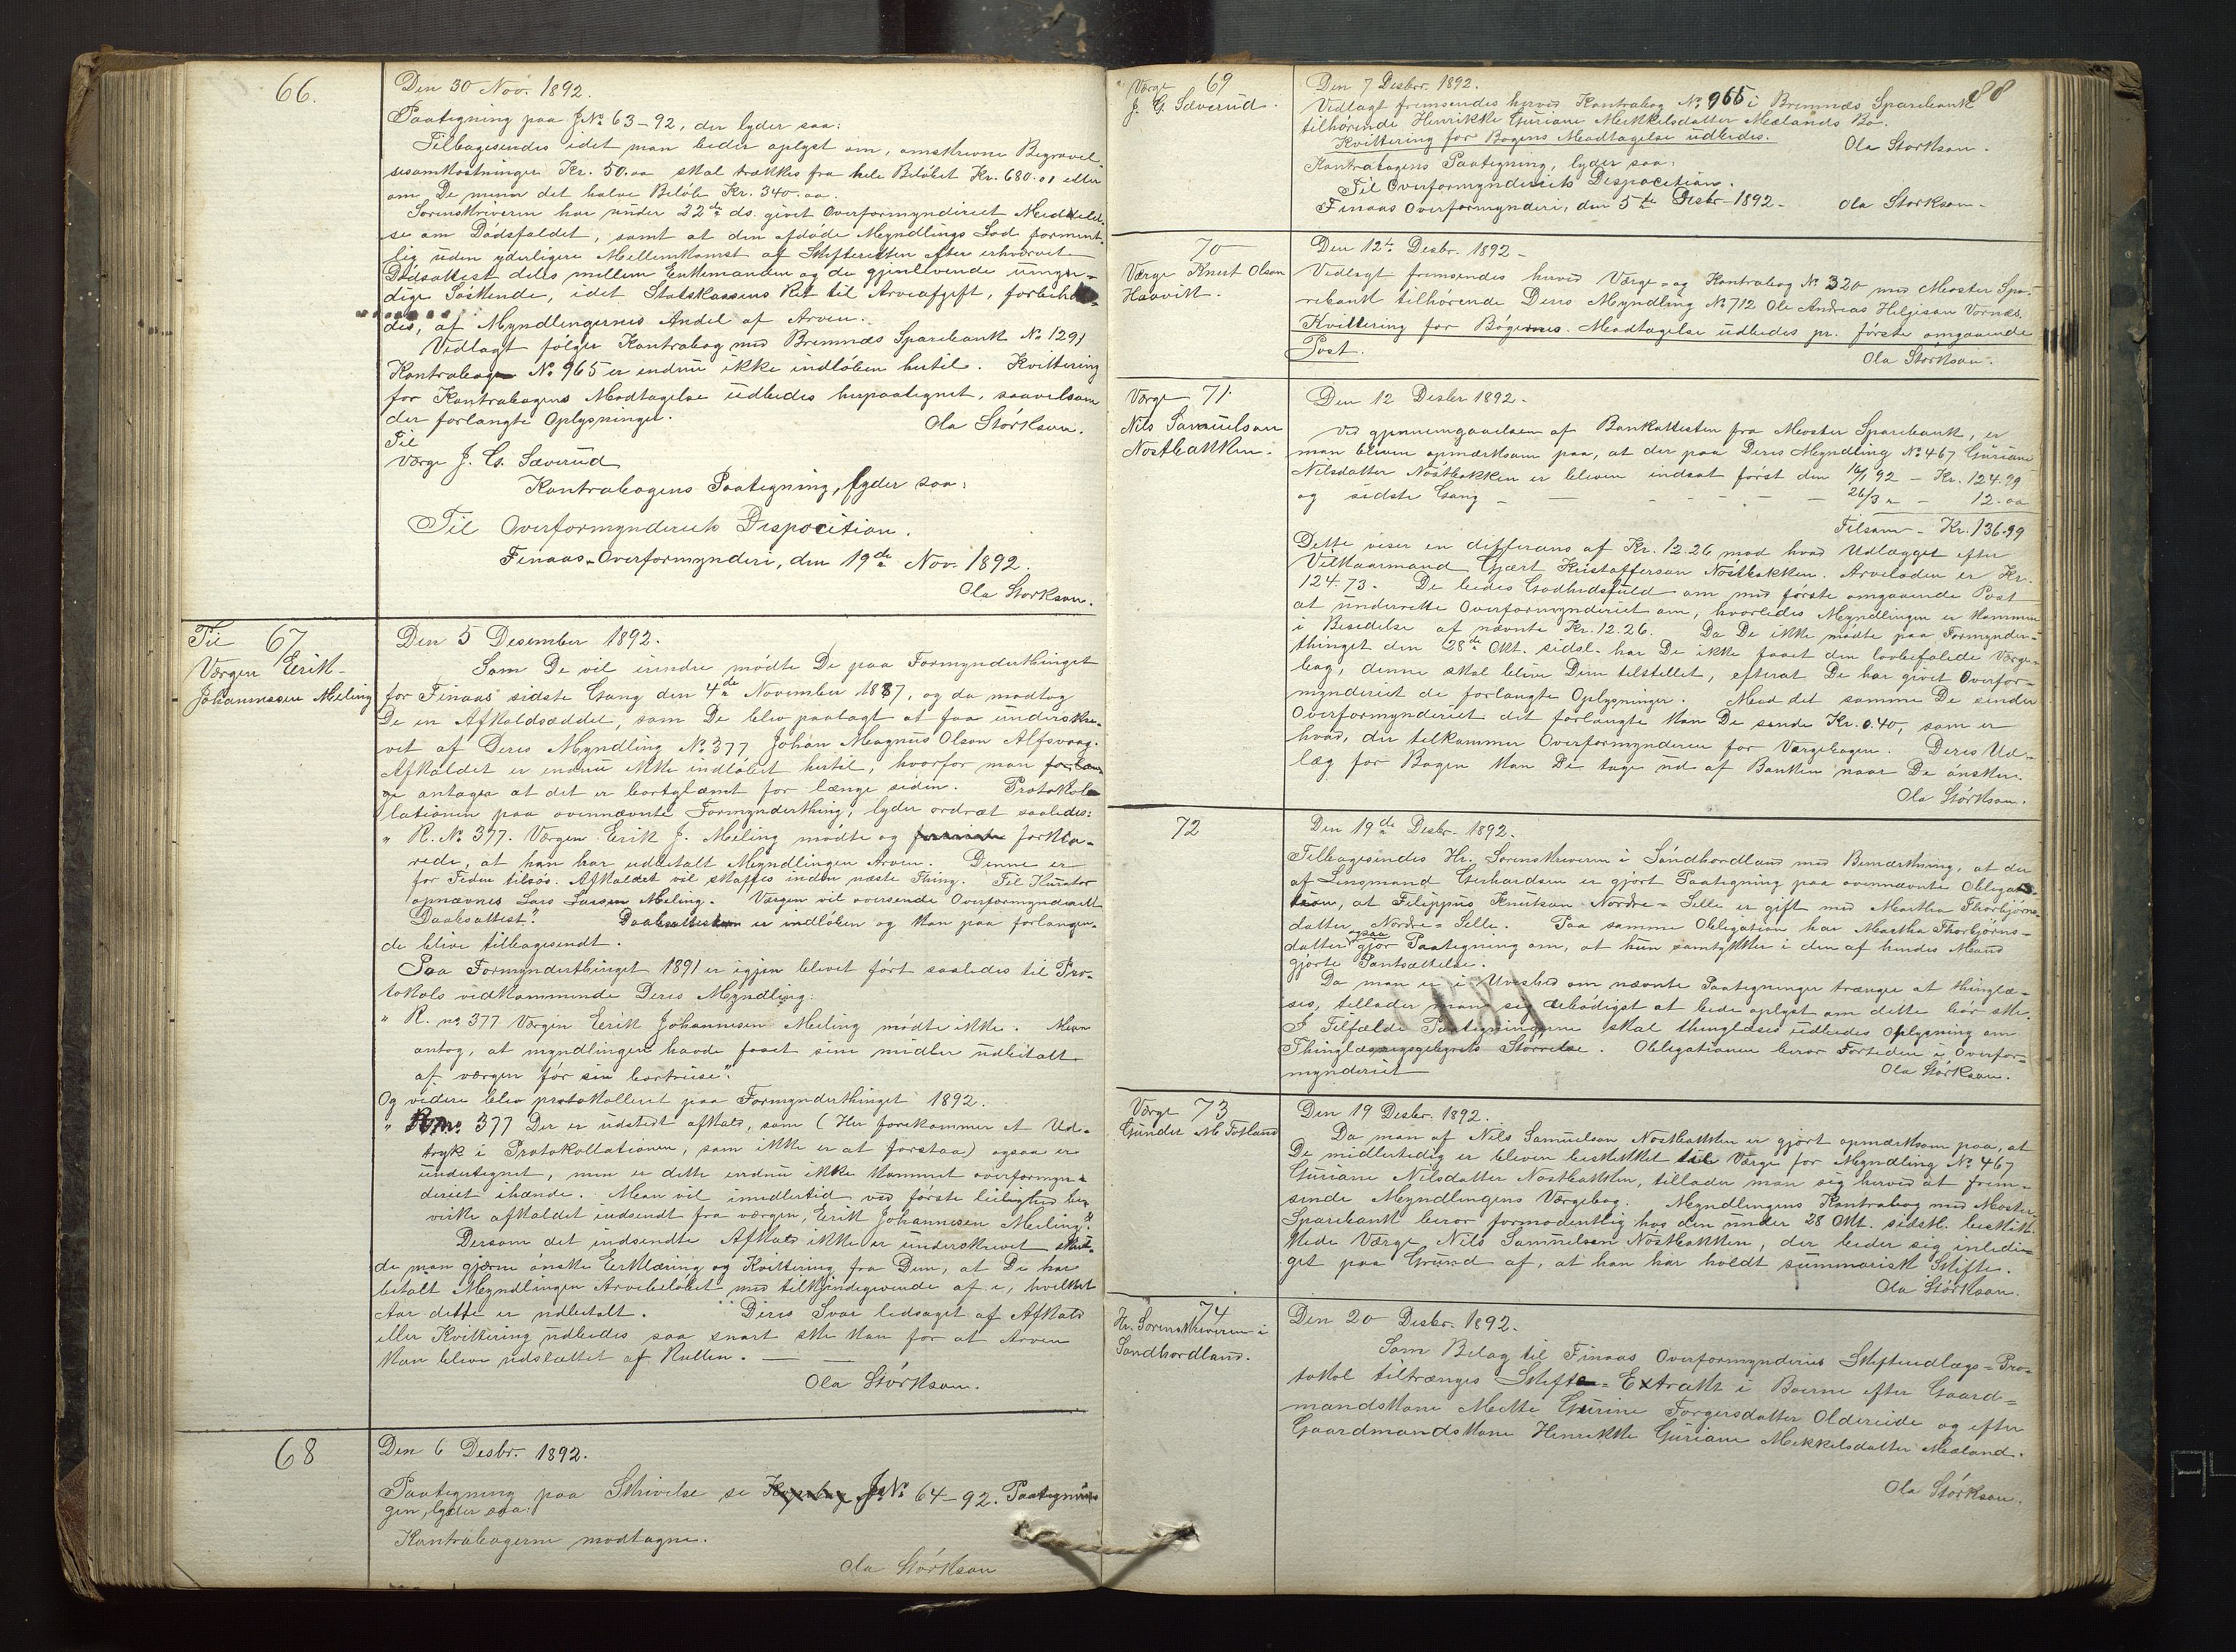 66.
Den 30 Nov. 1892.
Paategning paa JNo 63-92, der lyder saa:
Tilbagesendes idet man beder oplyst om, omskrevne Begravel-
sesomkostninger Kr. 50.00 skal trækkes fra hele Beløbet Kr. 680.01 eller
om De mener det halve Beløb Kr. 340.00.
Sorenskriveren har under 22de ds. givet Overformynderiet Meddelel-
se om Dødsfaldet, samt at den afdøde Myndlings Lod forment-
lig uden yderligere Mellemkomst af Skifteretten efter erhvervet
Dødsattest deles mellem Enkemanden og de gjenlevende umyn-
dige Søskende, idet Statskassens Ret til Arveafgift, forbehol-
des, af Myndlingernes Andel af Arven.
Vedlagt følger Kontrabog med Bremnæs Sparebank No 1291
Kontrabog No 965 er endnu ikke indløben hertil. Kvittering
for Kontrabogens Modtagelse udbedes herpaategnet, saavelsom
der forlangte Oplysninger.
Ola Størkson.
Til
Værge J. G. Sæverud
Kontrabogens Paategning, lyder saa:
Til Overformynderiets Disposition.
Finaas Overformynderi, den 19de Nov. 1892.
Ola Størkson.
Til 67
Værgen Eerik
Johannessen Meling
Den 5 Desember 1892.
Som De vil erindre mødte De paa Formynderthinget
for Finaas sidste Gang den 4de November 1887, og da modtog
De en Afkaldsæddel, som De blev paalagt at faa underskre-
vet af Deres Myndling No 377 Johan Magnus Olson Alfsvaag.
Afkaldet er endnu ikke indløbet hertil, hvorfor man
antager at det er bortglæmt for længe siden. Protokol-
lationen paa ovennævnte Formynderthing, lyder ordræt saaledes:
" R. No 377. Værgen Eerik J. Meling mødte og forkla-
rede, at han har udbetalt Myndlingen Arven. Denne er
for Tiden tilsøs. Afkaldet vil skaffes inden næste Thing. Til Kurator
opnævnes Lars Larsen Meling. Værgen vil oversende Overformynderiet
Daabsattest". Daabsattesten er indløben og kan paa forlangen-
de blive tilbagesendt.
Paa Formynderthinget 1891 er igjen blevet ført saaledes til Pro-
tokols vedkommende Deres Myndling:
" R. no 377 Værgen Eerik Johannesen Meling mødte ikke. Man
antog, at myndlingen havde faaet sine midler udbetalt
af værgen før sin bortreise".
Og videre blev protokolleret paa Formynderthinget 1892.
" R. no 377 Der er udstedt afkald, som (Her forekommer et Ud-
tryk i Protokollationen, som ikke er at forstaa) ogsaa er
undertegnet, men er dette endnu ikke kommet overformyn-
deriet ihænde. Man vil imidlertid ved første leilighed be-
virke afkaldet indsendt fra værgen, Eerik Johannesen Meling".
Dersom det indsendte Afkald ikke er underskrevet skul-
de man gjerne ønske Erklæring og Kvittering fra Dem, at De har
betalt Myndlingen Arvebeløbet med tilkjendegivende af i, hvilket
Aar dette er udbetalt. Deres Svar ledsaget af Afkald
eller Kvittering udbedes saa snart ske kan for at Arven
kan blive udslættet af Rullen.
Ola Størkson.
68
Den 6 Desbr. 1892.
Paategning paa Skrivelse se JNo 64-92. Paategnin-
gen, lyder saa:
Kontrabøgerne modtagne.
Ola Størkson
88
Værge 69
J. G. Sæverud.
Den 7 Desbr. 1892.
Vedlagt fremsendes herved Kontrabog No 965 i Bremnæs Sparebank
tilhørende Henrikke Guriane Mikkelsdatter Mælands Bo.
Kvittering for Bogens Modtagelse udbedes.
Ola Størkson.
Kontrabogens Paategning, lyder saa:
Til Overformynderiets Disposition.
Finaas Overformynderi, den 5te Desbr. 1892. Ola Størkson.
70
Værge Knut Olson
Haavik.
Den 12te Desbr. 1892
Vedlagt fremsendes herved Værge- og Kontrabog No 320 med Moster Spa-
rebank tilhørende Deres Myndling No 712 Ole Andreas Helgeson Vornæs.
Kvittering for Bøgernes Modtagelse udbedes pr. første omgaaende
Post.
Ola Størkson.
Værge 71.
Nils Samuelson
Nostbakken.
Den 12 Desbr 1892.
Ved gjennemgaaelsen af Bankattesten fra Moster Sparebank, er
man bleven opmærksom paa, at der paa Deres Myndling No 467 Guriane
Nilsdatter Nøstbakken er bleven indsat først den 16/1 92 - Kr. 124.99
og sidste Gang - 26/3 " - 12.00
Tilsam - Kr. 136.99
Dette viser en differans af Kr. 12.26 mod hvad Udlægget efter
Vilkaarmand Gjært Kristofferson Nøstbakken. Arveloden er Kr.
124.73. De bedes Godhedsfuld om med første omgaaende Post
at underrette Overformynderiet om, hvorledes Myndlingen er kommen
i Besidelse af nævnte Kr. 12.26. Da De ikke mødte paa Formynder-
thinget den 28de Okt. sidsl. har De ikke faaet den lovbefalede Værge-
bog, denne skal blive Dem tilstillet, efterat De har givet Overfor-
mynderiet de forlangte Oplysninger. Med det samme De sender
Overformynderiet det forlangte kan De sende Kr. 0.40, som er
hvad, der tilkommer Overformynderen for Værgebogen. Deres Ud-
læg for Bogen kan De tage ud af Banken naar De ønsker.
Ola Størkson.
72
Den 19de Desbr. 1892.
Tilbagesendes Hr. Sorenskriveren i Søndhordland med Bemærkning, at der
af Lensmand Gerhardsen er gjort Paategning paa ovennævnte Obliga-
tion, at Filippus Knutson Nordre-Selle er gift med Martha Thorbjørns-
datter Nordre-Selle. Paa samme Obligation har Martha Thorbjørns-
datter ogsaa gjor Paategning om, at hun samtykker i den af hendes Mand
gjorte Pantsættelse.
Da man er i Uvished om nævnte Paategninger trænger at thinglæ-
ses, tillader man sig ærbødigst at bede oplyst om dette bør ske.
I Tilfælde Paategningerne skal thinglæses udbedes Oplysning om
Thinglæsningsgebyrets Størrelse. Obligationen beror Fortiden i Overfor-
mynderiet
Ola Størkson.
Værge 73
Gunder M Totland
Den 19 Desbr. 1892.
Da man af Nils Samuelson Nostbakken er gjort opmærksom paa, at
De midlertedig er bleven beskikket til Værge for Myndling No 467
Guriane Nilsdatter Nostbakken, tillader man sig herved at frem-
sende Myndlingens Værgebog. Myndlingens Kontrabog med Moster
Sparebank beror formodentlig hos den under 28 Okt. sidstl. beskik-
kede Værge, Nils Samuelson Nostbakken, der beder sig inledi-
get paa Grund af, at han har holdt summarisk Skifte.
Ola Størkson.
74
Hr. Sorenskriveren i
Søndhordland.
Den 20 Desbr. 1892.
Som Belag til Finaas Overformynderies Skifteudlægs-Pro-
tokol tiltrænges Skifte-Extrakt i Boerne efter Gaard-
mandskone Mette Gurine Torgersdatter Oldereide og efter
Gaardmandskone Henrikke Guriane Mikkelsdatter Mæland.
Ola Størkson.